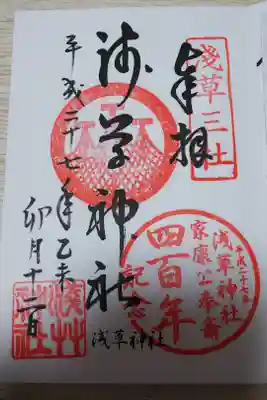 奉拝
浅草三社
浅草神社
平成二十七年乙未
卯月十二日
平成二十七年
浅草神社
家康公奉斎
四百年
記念
浅草神社